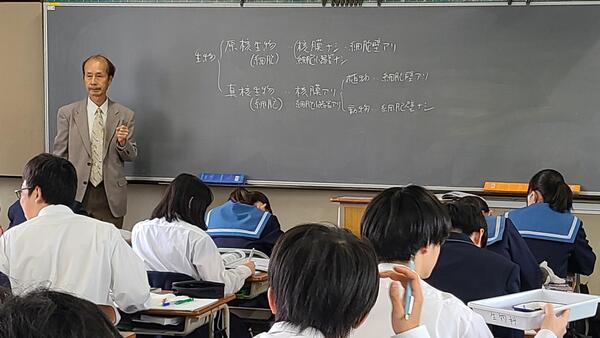 生物
原核生物 ‥ 核膜ナシ ‥ 細胞壁アリ
(細胞) 細胞小器官ナシ
真核生物 ‥ 核膜アリ
(細胞) 細胞小器官アリ
植物 ‥ 細胞壁アリ
動物 ‥ 細胞壁ナシ
生物科